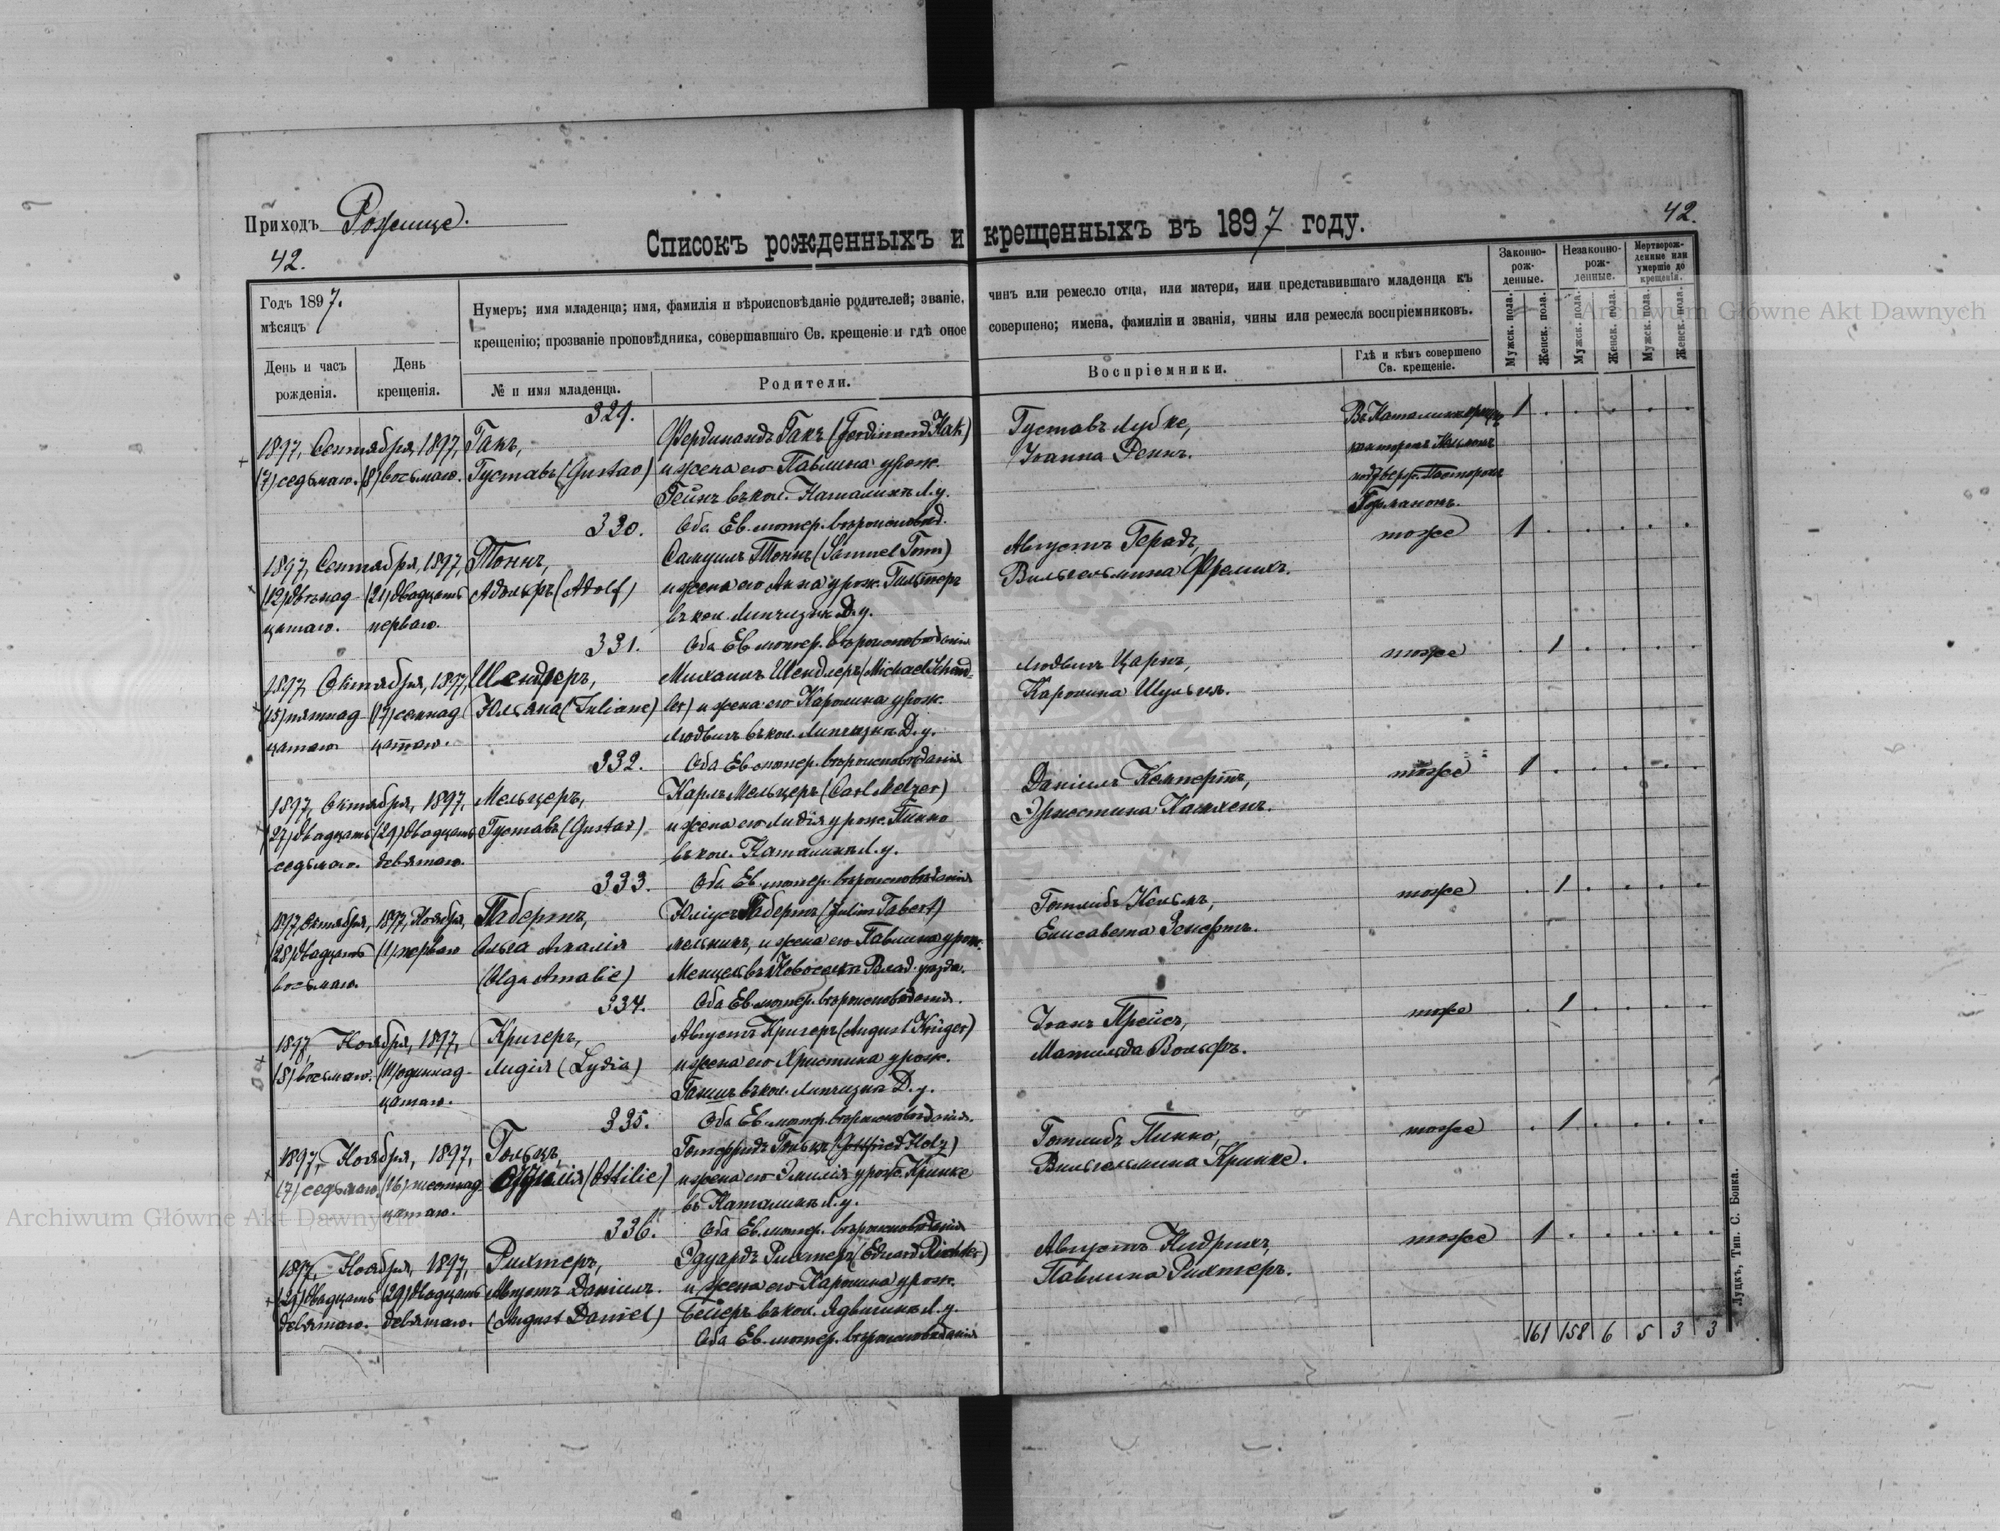 Приходъ Рожище.
42.
42.
Списокъ рожденныхъ и крещенныхъ въ 1897 году.
Годъ 1897.
мѣсяцъ
Нумеръ; имя младенца; имя, фамилія и вѣроисповѣданіе родителей; званіе, чинъ или ремесло отца, или матери, или представившаго младенца къ
крещенію; прозваніе проповѣдника, совершавшаго Св. крещеніе и гдѣ оное совершено; имена, фамиліи и званія, чины или ремесла воспріемниковъ.
Законно-рож-денные.
Незаконно-рож-денные.
Мертворож-денные или умершіе до крещенія.
Мужск. пола.
Женск. пола.
Мужск. пола.
Женск. пола.
Мужск. пола.
Женск. пола.
День и часъ рожденія.
День крещенія.
№ и имя младенца.
Родители.
Воспріемники.
Гдѣ и кѣмъ совершено Св. крещеніе.
329.
1897, Сентября, 1897,
(7) седьмаго. (8) восьмаго.
Гакъ,
Густавъ (Gustav)
Фердинандъ Гакъ (Ferdinand Hak)
и жена его Павлина урож.
Гейнъ въ кол. Каталинъ Л. у.
Оба Ев. лютер. вѣроисповѣд.
Густавъ Любке,
Іоанна Реннъ.
Пасторомъ
1
330.
1897, Сентября, 1897,
(12) двѣнад- (21) двадцать
цатаго. перваго.
Тоннъ,
Адольфъ (Adolf)
Самуилъ Тоннъ (Samuel Tonn)
и жена его Анна урож.
въ кол. Д. у.
Оба Ев. лютер. вѣроисповѣданія
Августъ Герадъ,
Вильгельмина
тоже
1
331.
1897, Октября, 1897,
(15) пятнад- (17) семнад
цатаго цатаго.
Шендлеръ,
Юльяна (Juliane)
Михаилъ Шендлеръ (Michael Schend-
ler) и жена его Каролина урож.
Людвигъ въ кол. Д. у.
Оба Ев. лютер. вѣроисповѣданія
Людвигъ Царпъ,
Каролина
тоже
1
332.
1897, Октября, 1897,
(27) двадцать (29) двадцать
седьмаго. девятаго.
Мельцеръ,
Густавъ (Gustav)
Карлъ Мельцеръ (Carl Melzer)
и жена его Лидія урож. Пинно
въ кол. Каталинъ Л. у.
Оба Ев. лютер. вѣроисповѣданія
Даніилъ
Эрнестина
тоже
1
333.
1897, Октября, 1897, Ноября,
(28) двадцать (1) перваго
восьмаго.
Табертъ,
Ольга Амалія
(Olga Amalie)
Юліусъ Табертъ (Julius Tabert)
мельникъ, и жена его Павлина урож.
Менцель въ Влад. уѣзда.
Оба Ев. лютер. вѣроисповѣданія.
Готлибъ
Елисавета
тоже
1
334.
1897, Ноября, 1897,
(8) восьмаго. (11) одиннад-
цатаго.
Кригеръ,
Лидія (Lydia)
Августъ Кригеръ (August Krüger)
и жена его Христина урож.
въ кол. Д. у.
Оба Ев. лютер. вѣроисповѣданія.
Іоанъ Прейсъ,
Матильда Вольфъ.
тоже
1
335.
1897, Ноября, 1897,
(7) седьмаго (16) шестнад
цатаго.
Гольцъ,
(Ottilie)
Готфридъ Гольцъ (Gottfried Holz)
и жена его Эмилія урож. Кринке
въ Каталинъ Л. у.
Оба Ев. лютер. вѣроисповѣданія
Готлибъ Пинно,
Вильгельмина Кринке.
тоже
1
336.
1897, Ноября, 1897,
(29) двадцать (29) двадцать
девятаго. девятаго.
Рихтеръ,
Августъ Даніилъ.
(August Daniel)
Эдуардъ Рихтеръ (Eduard Richter)
и жена его Каролина урож.
Бейеръ въ кол. Ядвигинъ Л. у.
Оба Ев. лютер. вѣроисповѣданія
Августъ Нидрихъ,
Павлина Рихтеръ.
тоже
1
161 158 6 5 3 3
Луцкъ, Тип. С. Бонка.
Archiwum Główne Akt Dawnych
Archiwum Główne Akt Dawnych